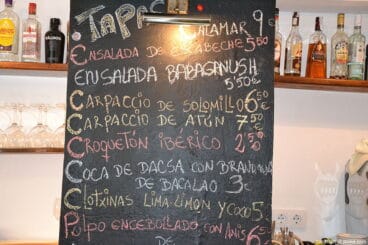 TAPAS
CALAMAR 9€
ENSALADA DE ESCABECHE 5'50
ENSALADA BABAGANUSH
5'50€
CARPACCIO DE SOLOMILLO 6'50€
CARPACCIO DE ATÚN 7'50€
CROQUETÓN IBÉRICO 2'50€
COCA DE DACSA CON BRANDADA
DE BACALAO 3€
CLOTXINAS LIMA-LIMÓN Y COCO 5€
PULPO ENCEBOLLADO CON ANÍS 6'50
DE